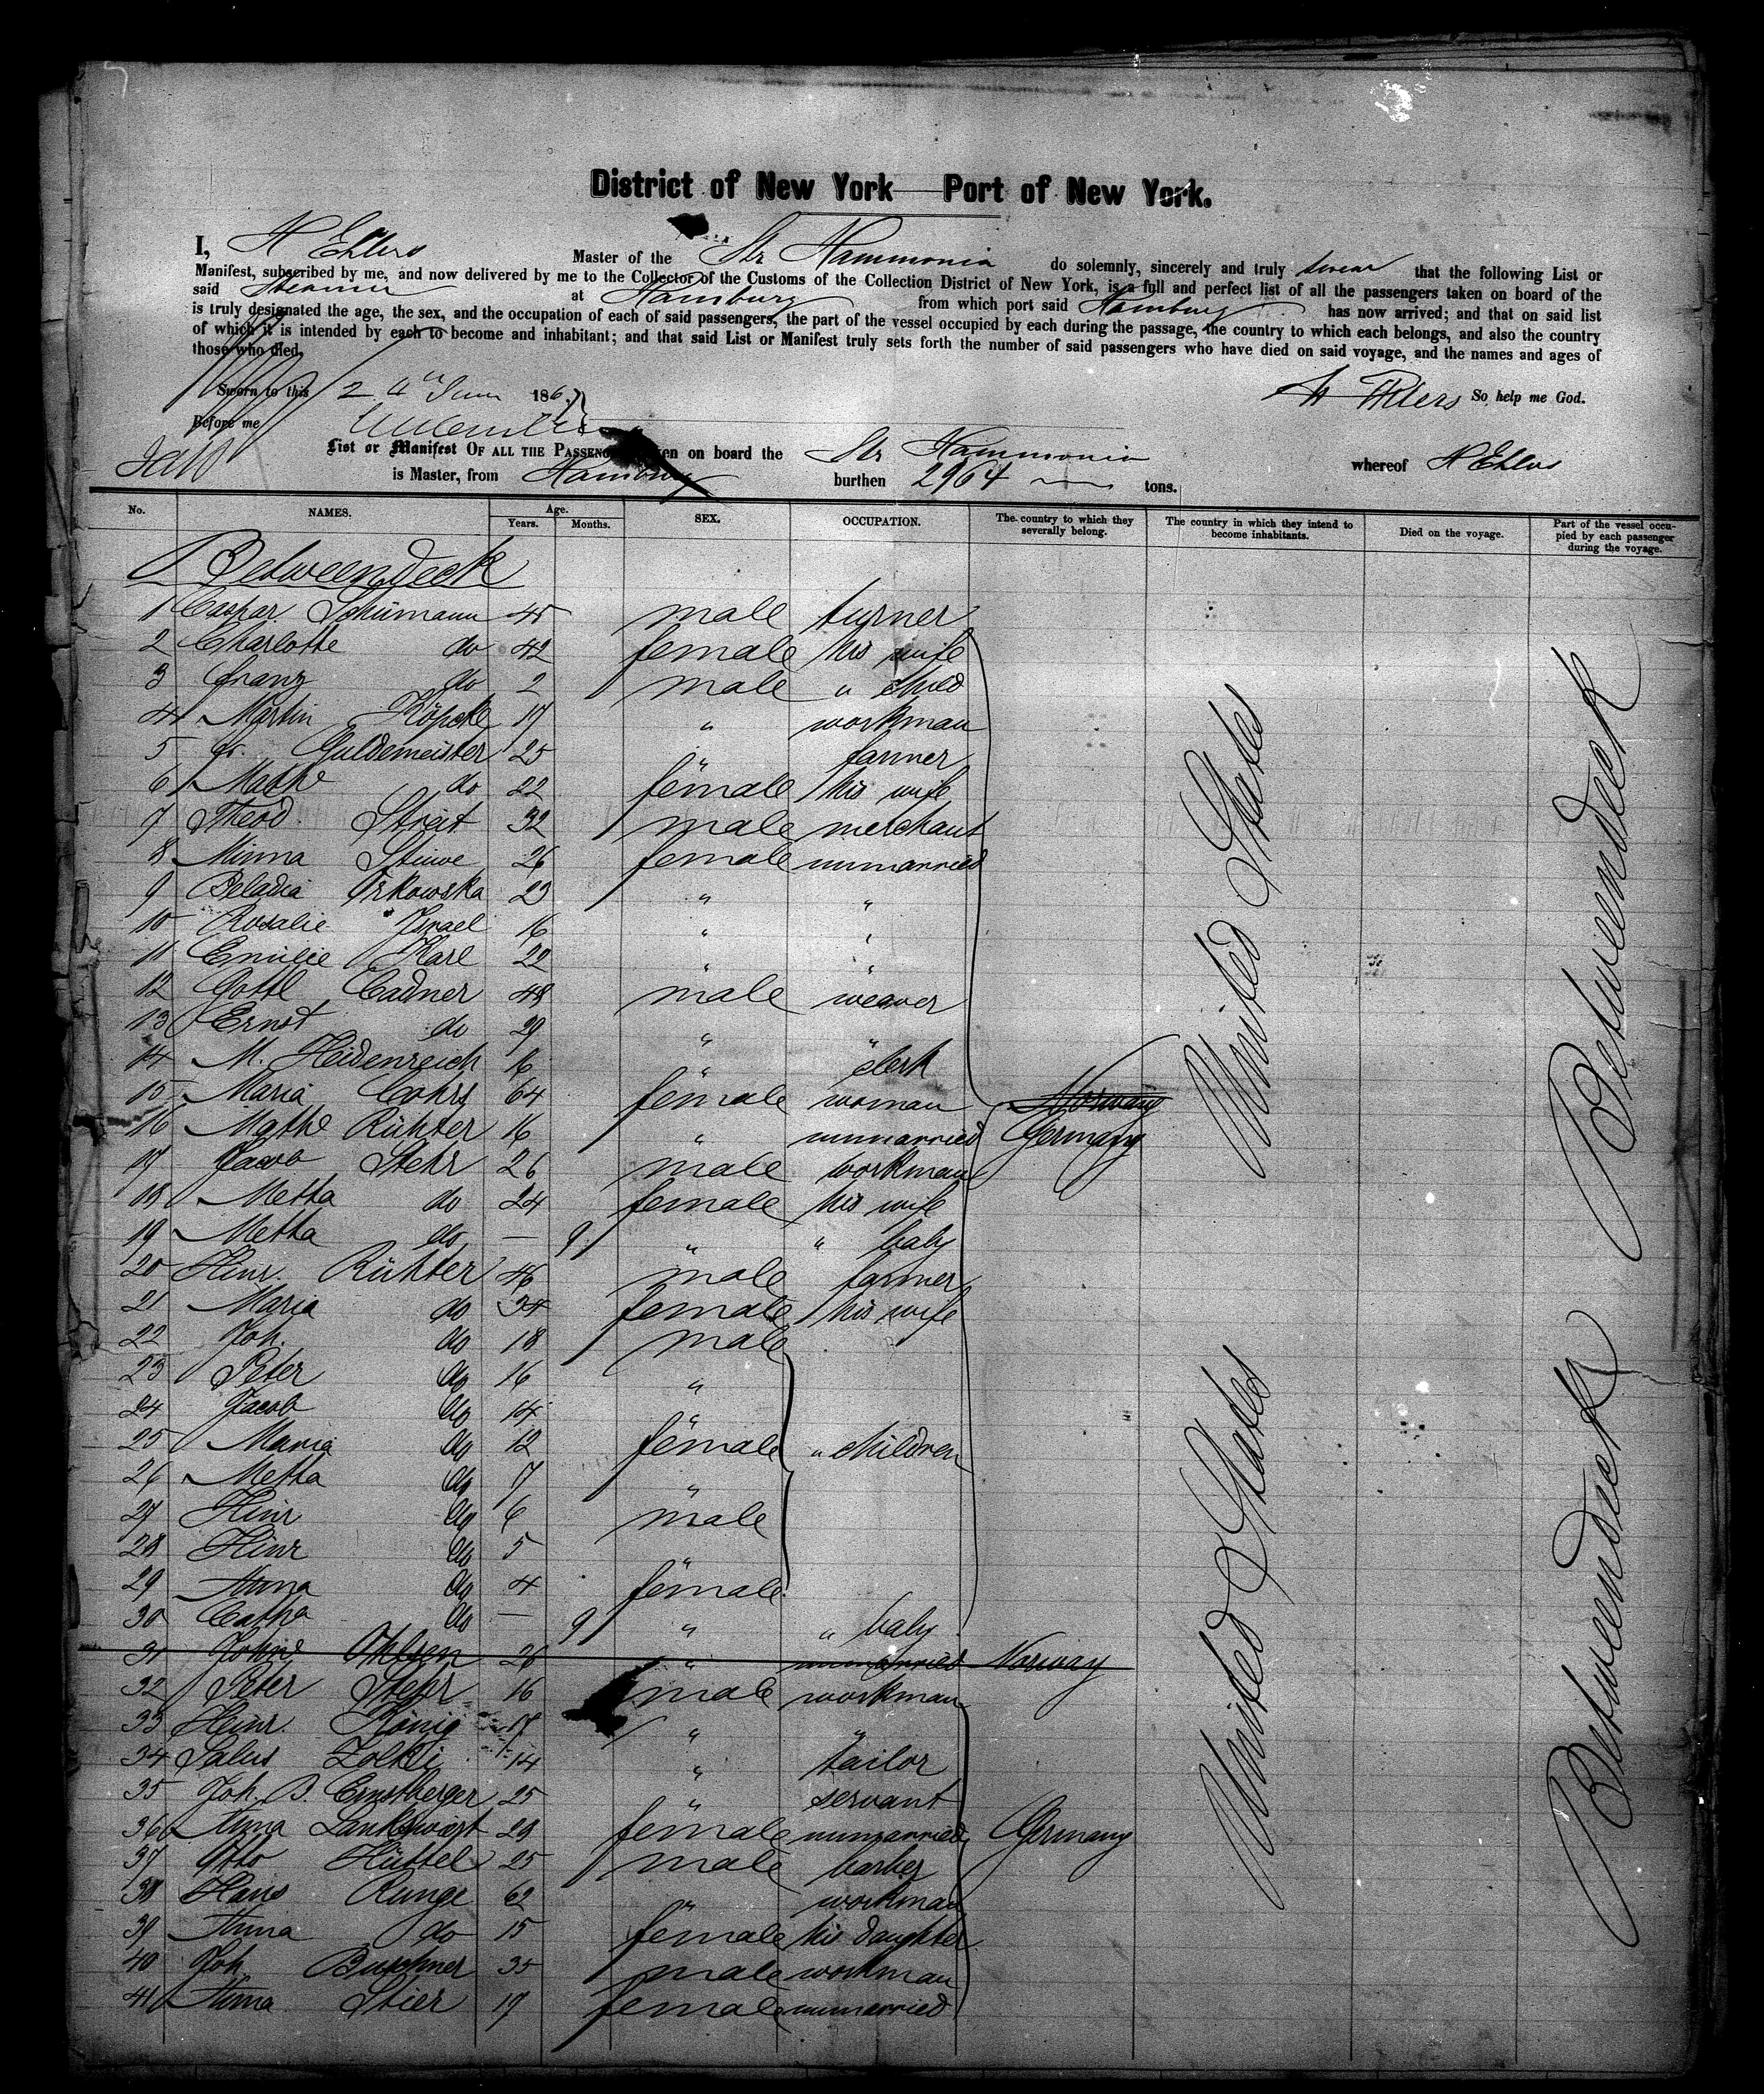 District of New York — Port of New York.
I, H Ehlers Master of the Str Hammonia do solemnly, sincerely and truly swear that the following List or
Manifest, subscribed by me, and now delivered by me to the Collector of the Customs of the Collection District of New York, is a full and perfect list of all the passengers taken on board of the
said Steamer at Hamburg from which port said Hamburg has now arrived; and that on said list
is truly designated the age, the sex, and the occupation of each of said passengers, the part of the vessel occupied by each during the passage, the country to which each belongs, and also the country
of which it is intended by each to become and inhabitant; and that said List or Manifest truly sets forth the number of said passengers who have died on said voyage, and the names and ages of
those who died.
Sworn to this 24th June 186 H Ehlers So help me God.
Before me
List or Manifest OF ALL THE PASSENGERS taken on board the Str Hammonia whereof H Ehlers
is Master, from Hamburg burthen 2964 tons.
No. NAMES. Age. Years. Months. SEX. OCCUPATION. The country to which they severally belong. The country in which they intend to become inhabitants. Died on the voyage. Part of the vessel occupied by each passenger during the voyage.
Betweendeck
1 Caspar Schümann 45 male turner
2 Charlotte do 42 female his wife
3 Franz do 2 male " child
4 Martin Köpcke 17 " workman
5 Fr. Guldemeister 25 " farmer
6 Mathe do 22 female his wife
7 Theod. Streit 32 male merchant
8 Minna Stüwe 26 female unmarried
9 Beladia Orkowska 23 " "
10 Rosalie Israel 16 " "
11 Emilie Karl 22 " "
12 Gottl Cadner 48 male weaver
13 Ernst do 29 " "
14 M. Heidenreich 16 " clerk
15 Maria Cohrs 64 female woman Norway
16 Mathe Richter 16 " unmarried Germany
17 Jacob Stehr 26 male workman
18 Metta do 24 female his wife
19 Metta do — 9 " " baby
20 Hinr. Richter 46 male farmer
21 Maria do 34 female his wife
22 Joh. do 18 male
23 Peter do 16 "
24 Jacob do 14 "
25 Maria do 12 female " children
26 Metta do 7 "
27 Hinr do 6 male
28 Hinr do 5 "
29 Anna do 4 female
30 Catha do — 9 " " baby
31 Johne Ohlsen 26 " unmarried Norway
32 Peter Stehr 16 male workman
33 Heinr. König 17 " "
34 Salus Zolki 14 " tailor
35 Joh. B. Ernstberger 25 " servant
36 Anna Lankswirt 29 female unmarried Germany
37 Otto Hüttel 25 male barber
38 Hans Runge 62 " workman
39 Anna do 15 female his daughter
40 Joh Buschner 35 male workman
41 Anna Stier 17 female unmarried
United States
United States
Betweendeck
Betweendeck